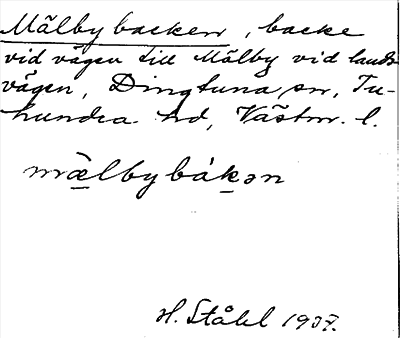 Mälbybacken, backe
vid vägen till Mälby vid lands-
vägen, Dingtuna sn, Tu-
hundra hd, Västm. l.
mälbybákən
H. Ståhl 1937.